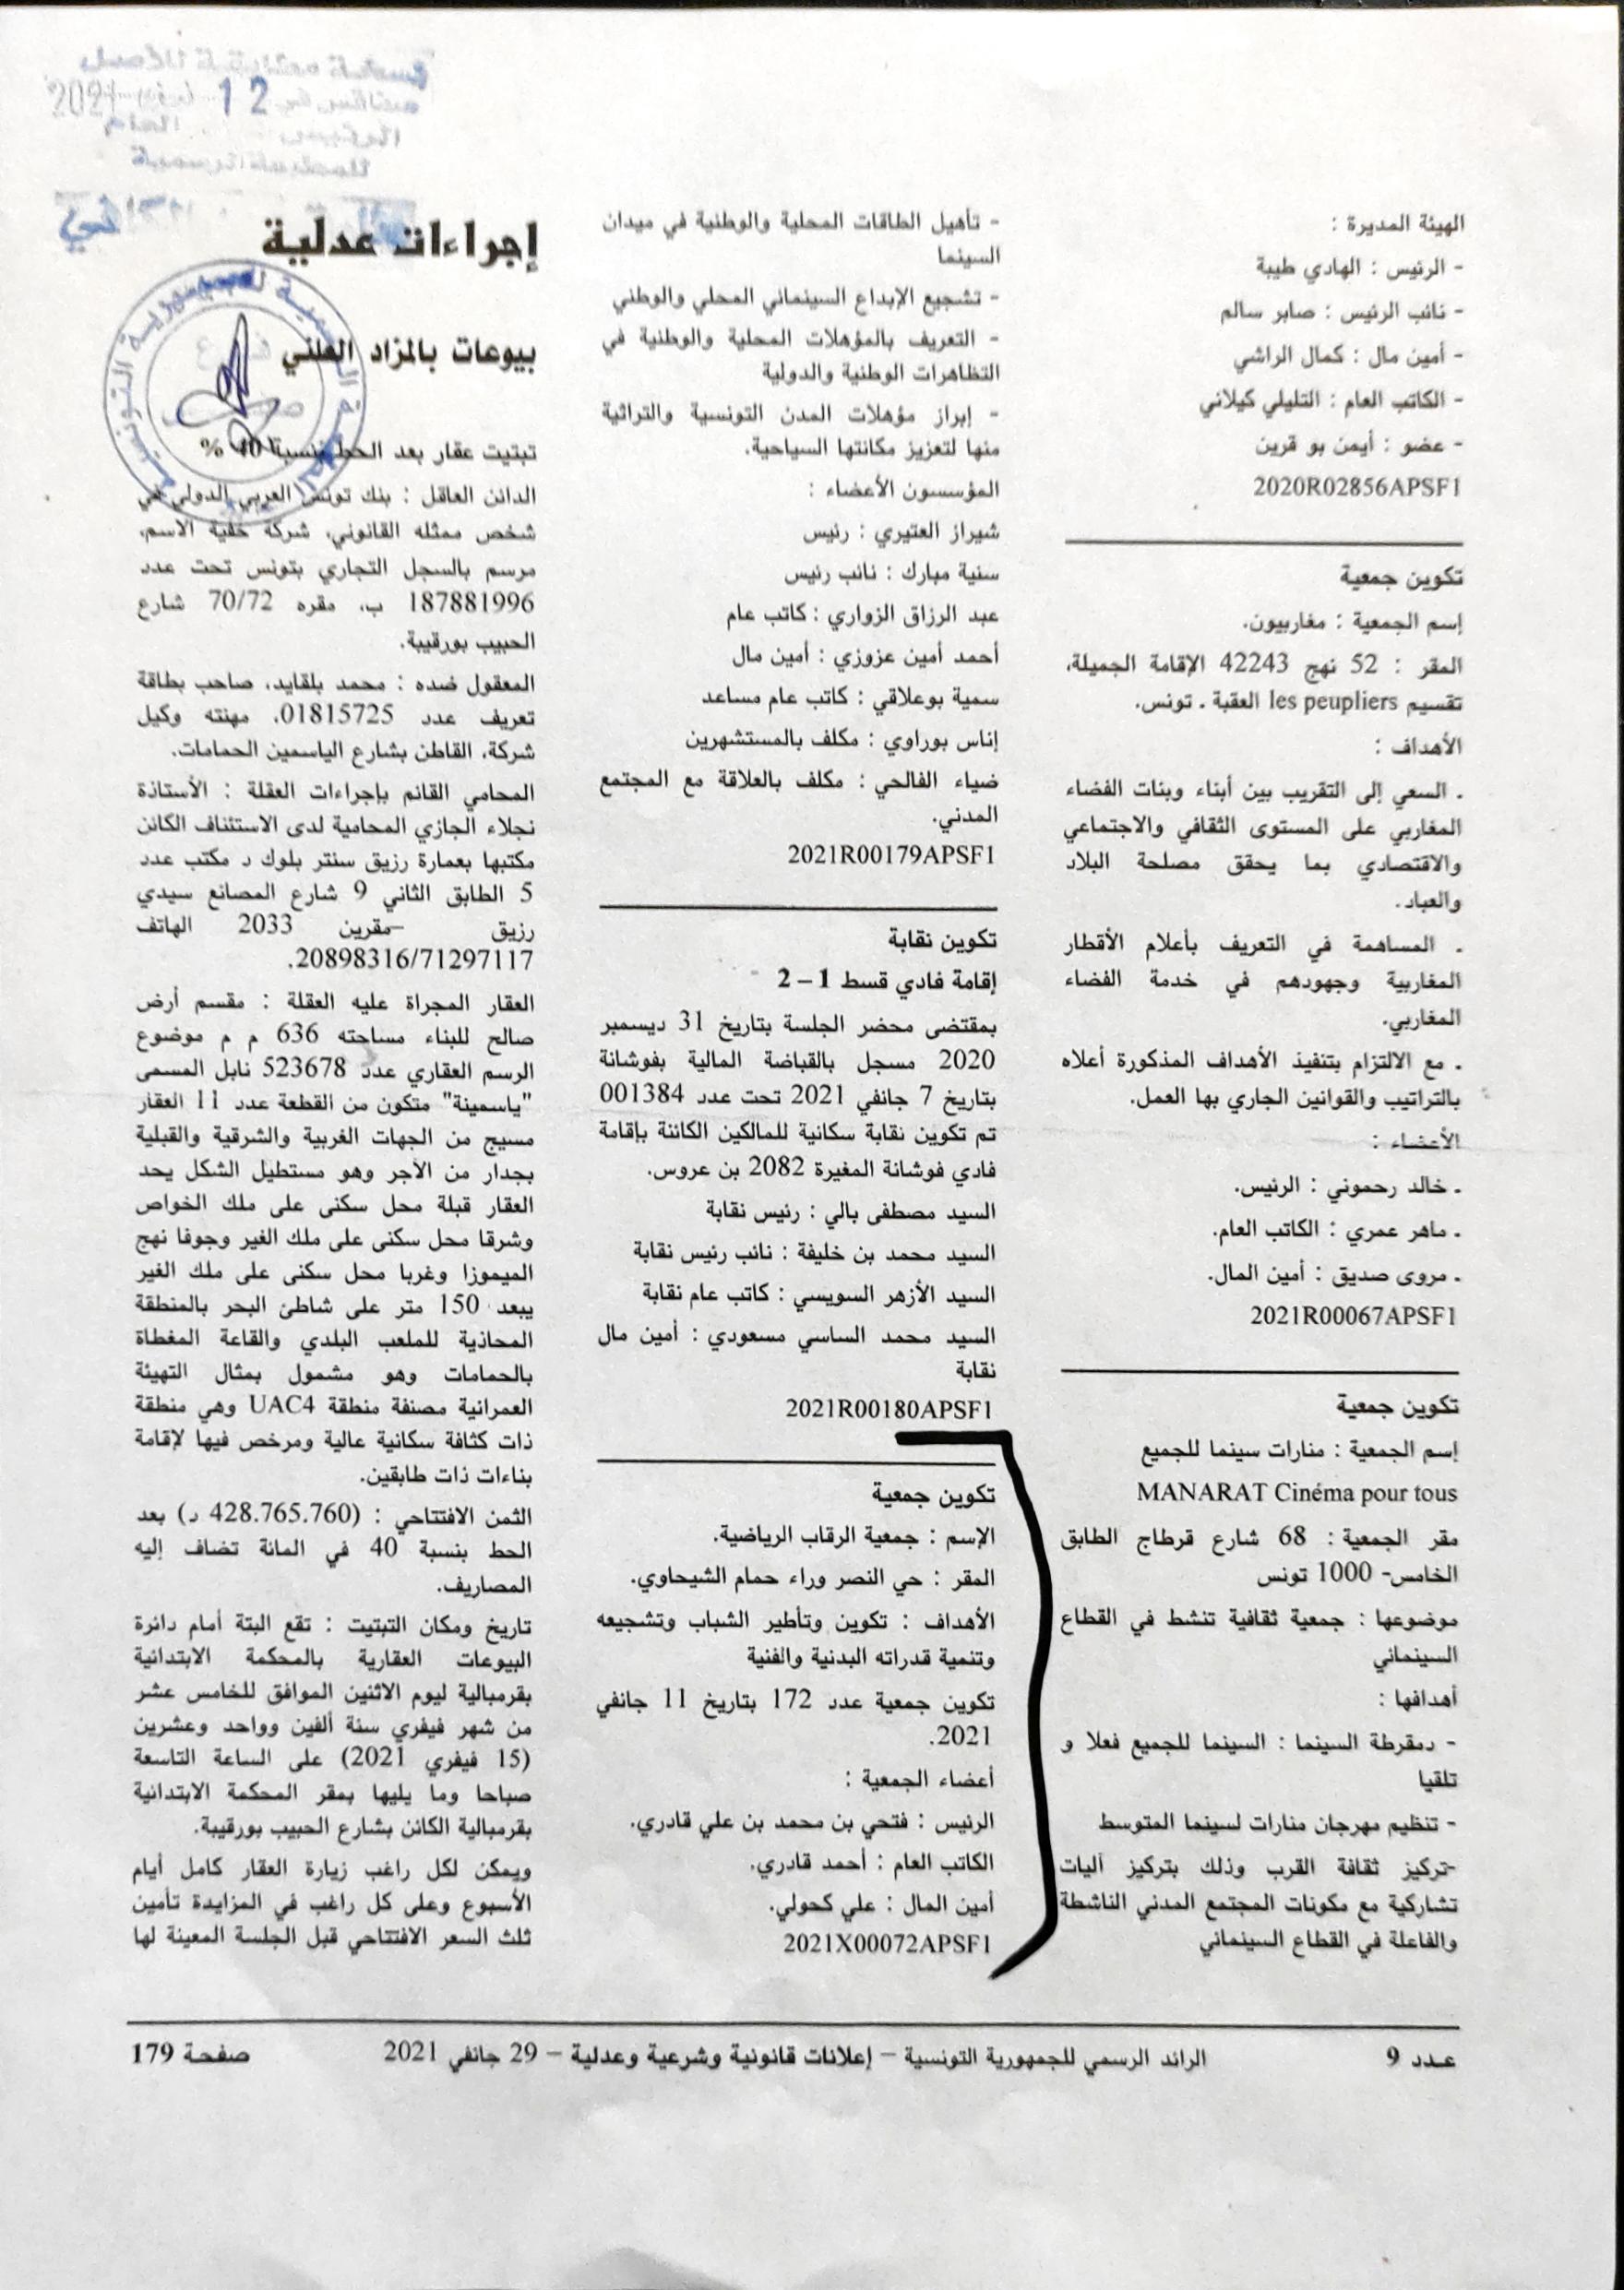 الهيئة المديرة :
- الرئيس : الهادي طيبة
- نائب الرئيس : صابر سالم
- أمين مال : كمال الراشي
- الكاتب العام : التليلي كيلاني
- عضو : أيمن بو قرين
2020R02856APSF1
تكوين جمعية
إسم الجمعية : مغاربيون.
المقر : 52 نهج 42243 الإقامة الجميلة،
تقسيم les peupliers العقبة ـ تونس.
الأهداف :
ـ السعي إلى التقريب بين أبناء وبنات الفضاء
المغاربي على المستوى الثقافي والاجتماعي
والاقتصادي بما يحقق مصلحة البلاد
والعباد.
ـ المساهمة في التعريف بأعلام الأقطار
المغاربية وجهودهم في خدمة الفضاء
المغاربي.
ـ مع الالتزام بتنفيذ الأهداف المذكورة أعلاه
بالتراتيب والقوانين الجاري بها العمل.
الأعضاء :
ـ خالد رحموني : الرئيس.
ـ ماهر عمري : الكاتب العام.
ـ مروى صديق : أمين المال.
2021R00067APSF1
تكوين جمعية
إسم الجمعية : منارات سينما للجميع
MANARAT Cinéma pour tous
مقر الجمعية : 68 شارع قرطاج الطابق
الخامس- 1000 تونس
موضوعها : جمعية ثقافية تنشط في القطاع
السينمائي
أهدافها :
- دمقرطة السينما : السينما للجميع فعلا و
تلقيا
- تنظيم مهرجان منارات لسينما المتوسط
-تركيز ثقافة القرب وذلك بتركيز آليات
تشاركية مع مكونات المجتمع المدني الناشطة
والفاعلة في القطاع السينمائي
- تأهيل الطاقات المحلية والوطنية في ميدان
السينما
- تشجيع الإبداع السينمائي المحلي والوطني
- التعريف بالمؤهلات المحلية والوطنية في
التظاهرات الوطنية والدولية
- إبراز مؤهلات المدن التونسية والتراثية
منها لتعزيز مكانتها السياحية.
المؤسسون الأعضاء :
شيراز العتيري : رئيس
سنية مبارك : نائب رئيس
عبد الرزاق الزواري : كاتب عام
أحمد أمين عزوزي : أمين مال
سمية بوعلاقي : كاتب عام مساعد
إناس بوراوي : مكلف بالمستشهرين
ضياء الفالحي : مكلف بالعلاقة مع المجتمع
المدني.
2021R00179APSF1
تكوين نقابة
إقامة فادي قسط 1 – 2
بمقتضى محضر الجلسة بتاريخ 31 ديسمبر
2020 مسجل بالقباضة المالية بفوشانة
بتاريخ 7 جانفي 2021 تحت عدد 001384
تم تكوين نقابة سكانية للمالكين الكائنة بإقامة
فادي فوشانة المغيرة 2082 بن عروس.
السيد مصطفى بالي : رئيس نقابة
السيد محمد بن خليفة : نائب رئيس نقابة
السيد الأزهر السويسي : كاتب عام نقابة
السيد محمد الساسي مسعودي : أمين مال
نقابة
2021R00180APSF1
تكوين جمعية
الإسم : جمعية الرقاب الرياضية.
المقر : حي النصر وراء حمام الشيحاوي.
الأهداف : تكوين وتأطير الشباب وتشجيعه
وتنمية قدراته البدنية والفنية
تكوين جمعية عدد 172 بتاريخ 11 جانفي
2021.
أعضاء الجمعية :
الرئيس : فتحي بن محمد بن علي قادري.
الكاتب العام : أحمد قادري.
أمين المال : علي كحولي.
2021X00072APSF1
12
إجراءات عدلية
بيوعات بالمزاد العلني
تبتيت عقار بعد الحط بنسبة 40 %
الدائن العاقل : بنك تونس العربي الدولي في
شخص ممثله القانوني، شركة خفية الاسم،
مرسم بالسجل التجاري بتونس تحت عدد
187881996 ب، مقره 70/72 شارع
الحبيب بورقيبة.
المعقول ضده : محمد بلقايد، صاحب بطاقة
تعريف عدد 01815725، مهنته وكيل
شركة، القاطن بشارع الياسمين الحمامات.
المحامي القائم بإجراءات العقلة : الأستاذة
نجلاء الجازي المحامية لدى الاستئناف الكائن
مكتبها بعمارة رزيق سنتر بلوك د مكتب عدد
5 الطابق الثاني 9 شارع المصانع سيدي
رزيق –مقرين 2033 الهاتف
20898316/71297117.
العقار المجراة عليه العقلة : مقسم أرض
صالح للبناء مساحته 636 م م موضوع
الرسم العقاري عدد 523678 نابل المسمى
"ياسمينة" متكون من القطعة عدد 11 العقار
مسيج من الجهات الغربية والشرقية والقبلية
بجدار من الآجر وهو مستطيل الشكل يحد
العقار قبلة محل سكنى على ملك الخواص
وشرقا محل سكنى على ملك الغير وجوفا نهج
الميموزا وغربا محل سكنى على ملك الغير
يبعد 150 متر على شاطئ البحر بالمنطقة
المحاذية للملعب البلدي والقاعة المغطاة
بالحمامات وهو مشمول بمثال التهيئة
العمرانية مصنفة منطقة UAC4 وهي منطقة
ذات كثافة سكانية عالية ومرخص فيها لإقامة
بناءات ذات طابقين.
الثمن الافتتاحي : (428.765.760 د) بعد
الحط بنسبة 40 في المائة تضاف إليه
المصاريف.
تاريخ ومكان التبتيت : تقع البتة أمام دائرة
البيوعات العقارية بالمحكمة الابتدائية
بقرمبالية ليوم الاثنين الموافق للخامس عشر
من شهر فيفري سنة ألفين وواحد وعشرين
(15 فيفري 2021) على الساعة التاسعة
صباحا وما يليها بمقر المحكمة الابتدائية
بقرمبالية الكائن بشارع الحبيب بورقيبة.
ويمكن لكل راغب زيارة العقار كامل أيام
الأسبوع وعلى كل راغب في المزايدة تأمين
ثلث السعر الافتتاحي قبل الجلسة المعينة لها
عـدد 9
الرائد الرسمي للجمهورية التونسية – إعلانات قانونية وشرعية وعدلية – 29 جانفي 2021
صفحة 179